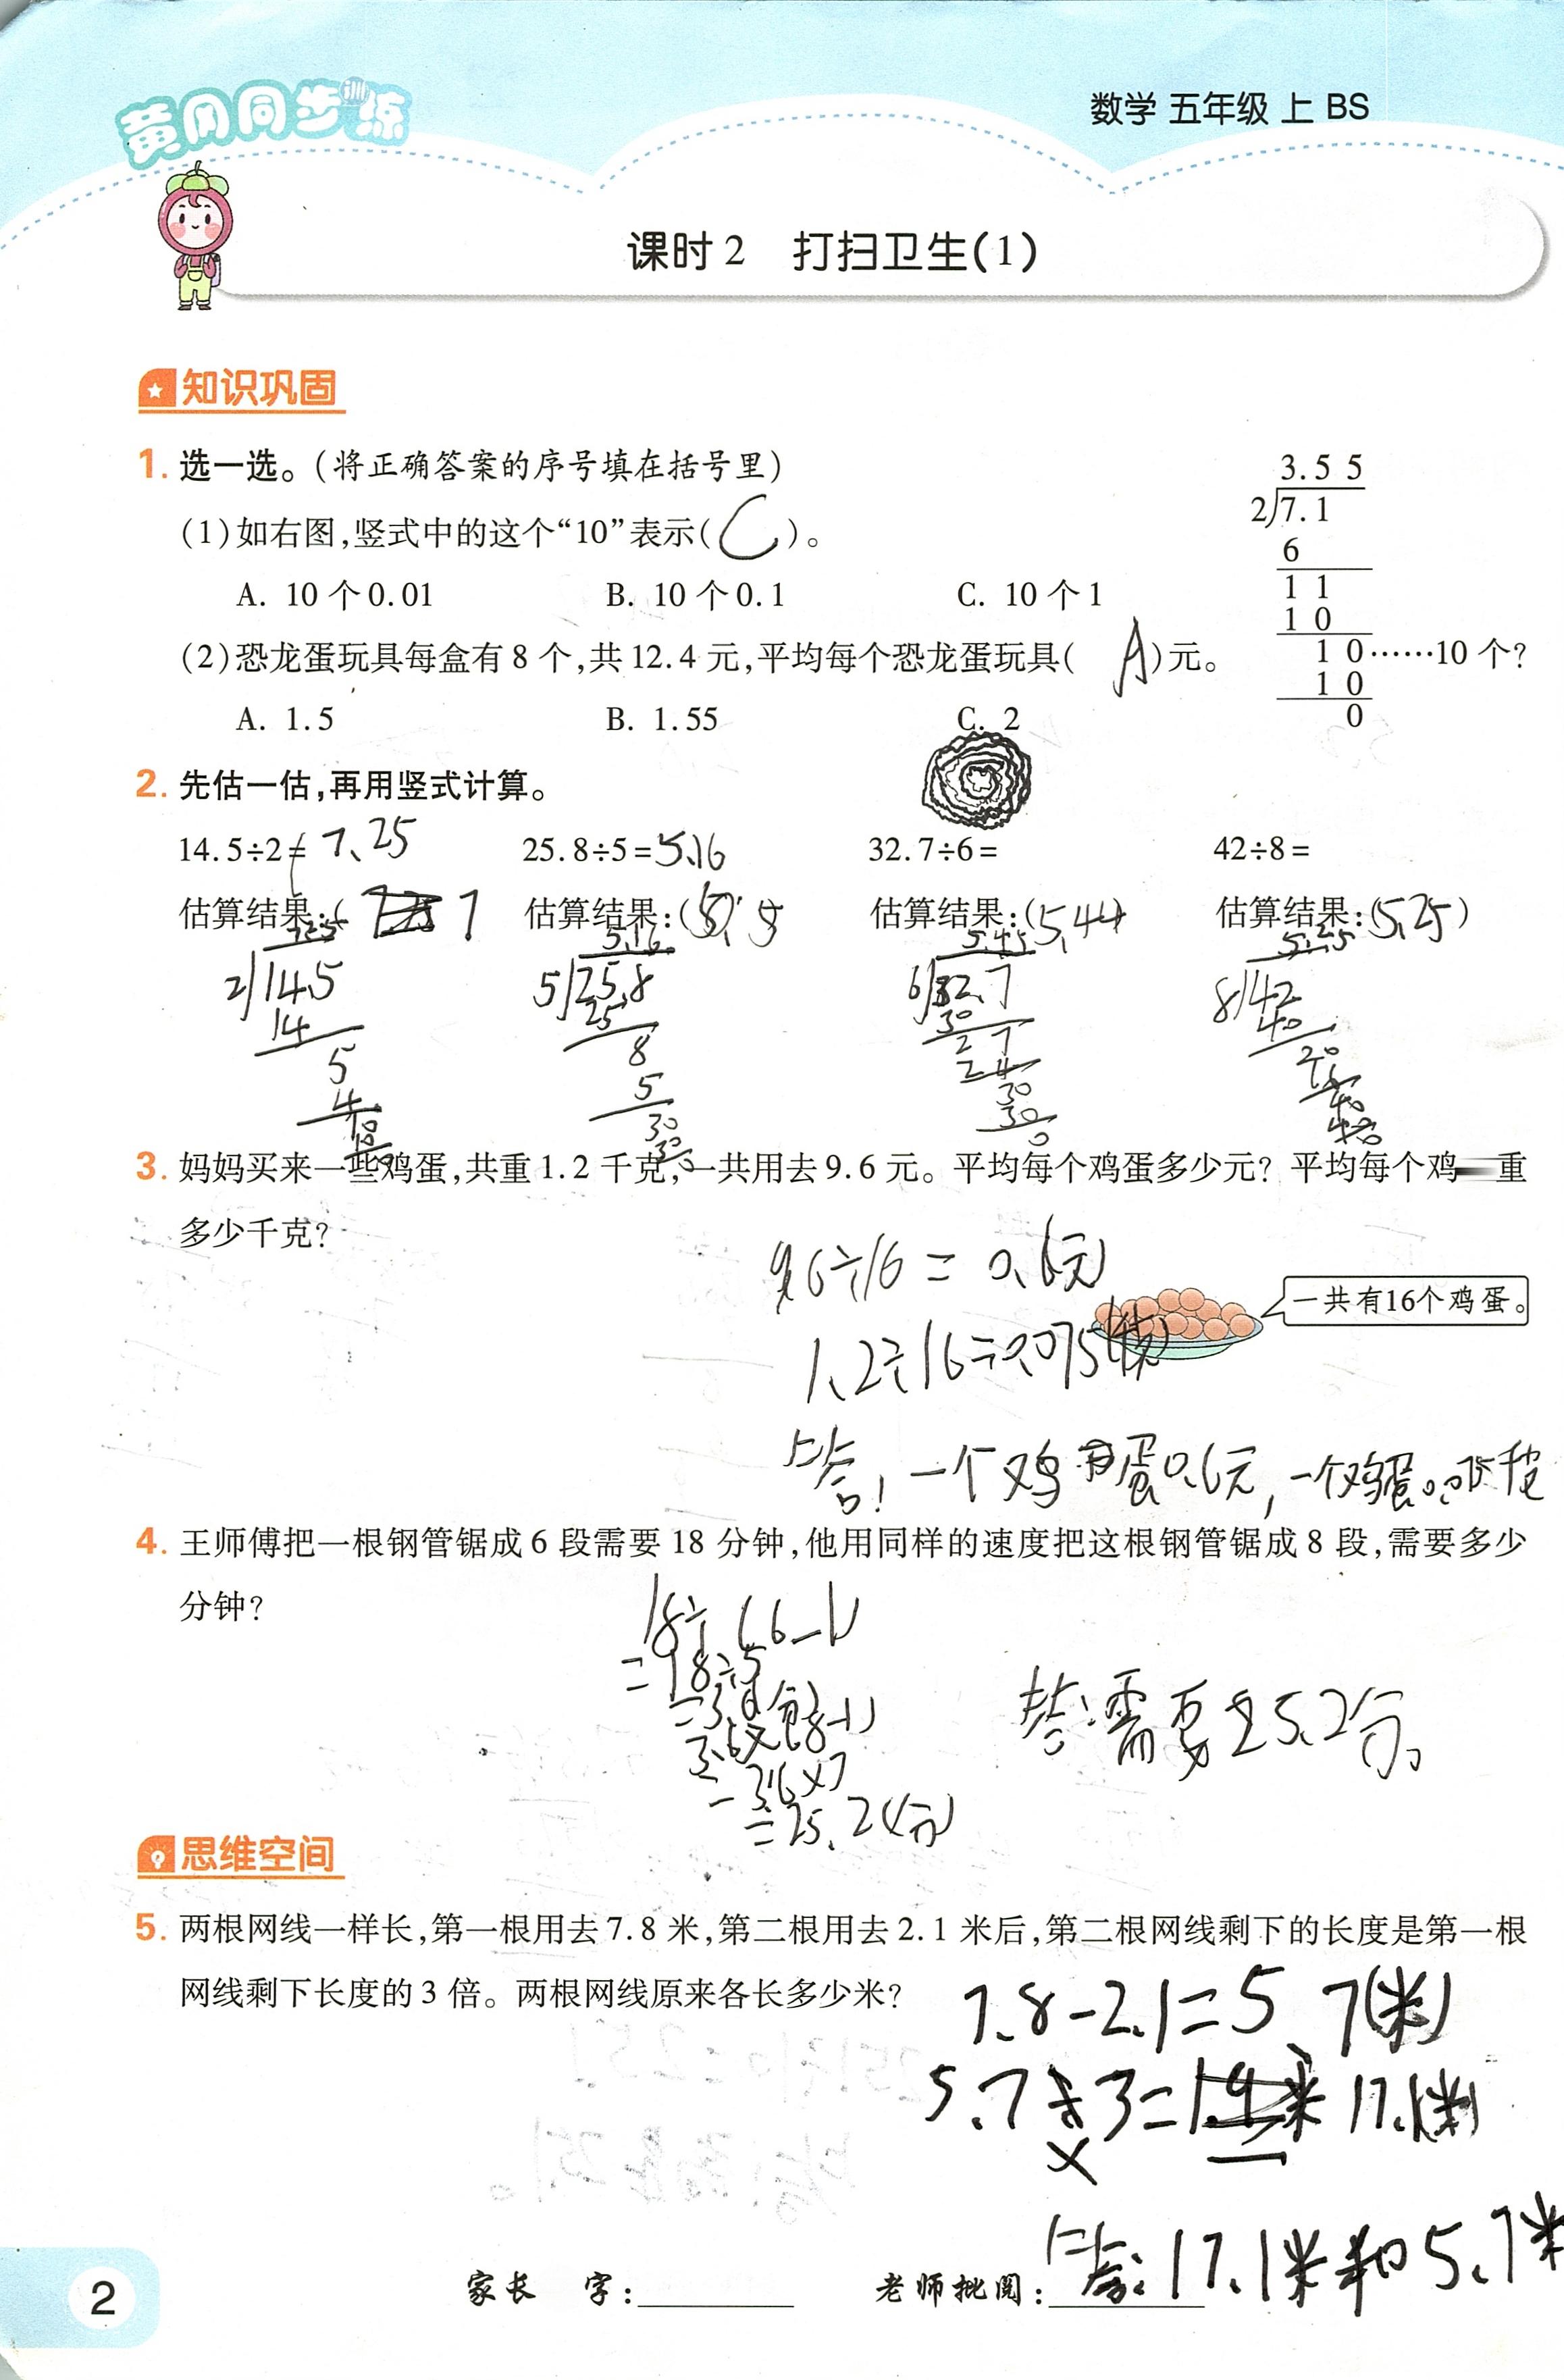 黄冈同步训练
数学 五年级 上 BS
课时2 打扫卫生(1)
知识巩固
1. 选一选。(将正确答案的序号填在括号里)
(1)如右图,竖式中的这个“10”表示( C )。
A. 10个0.01 B. 10个0.1 C. 10个1
(2)恐龙蛋玩具每盒有8个,共12.4元,平均每个恐龙蛋玩具( A )元。
A. 1.5 B. 1.55 C. 2
3.5 5
2 7.1
6
1 1
1 0
1 0……10个?
1 0
0
2. 先估一估,再用竖式计算。
14.5÷2= 7.25 25.8÷5=5.16 32.7÷6= 42÷8=
估算结果:( 7 估算结果:( 估算结果:(5.44) 估算结果:(5.25)
7.25
2 14.5
14
5
4
10
10
5.16
5 25.8
25
8
5
30
30
5.45
6 32.7
30
2 7
2 4
30
30
0
5.25
8 42
40
20
16
40
40
3. 妈妈买来一些鸡蛋,共重1.2千克,一共用去9.6元。平均每个鸡蛋多少元?平均每个鸡 重
多少千克?
9.6÷16=0.6(元)
一共有16个鸡蛋。
1.2÷16=0.075
答:一个鸡蛋0.6元,一个鸡蛋0.075千克
4. 王师傅把一根钢管锯成6段需要18分钟,他用同样的速度把这根钢管锯成8段,需要多少
分钟?
18÷(6-1)
=18÷5
=3.6
3.6×(8-1)
=3.6×7
=25.2(分)
答:需要25.2分。
思维空间
5. 两根网线一样长,第一根用去7.8米,第二根用去2.1米后,第二根网线剩下的长度是第一根
网线剩下长度的3倍。两根网线原来各长多少米?
7.8-2.1=5.7(米)
5.7×3=17.1(米)
答:17.1米和5.7米
2
家长 字: 老师批阅: